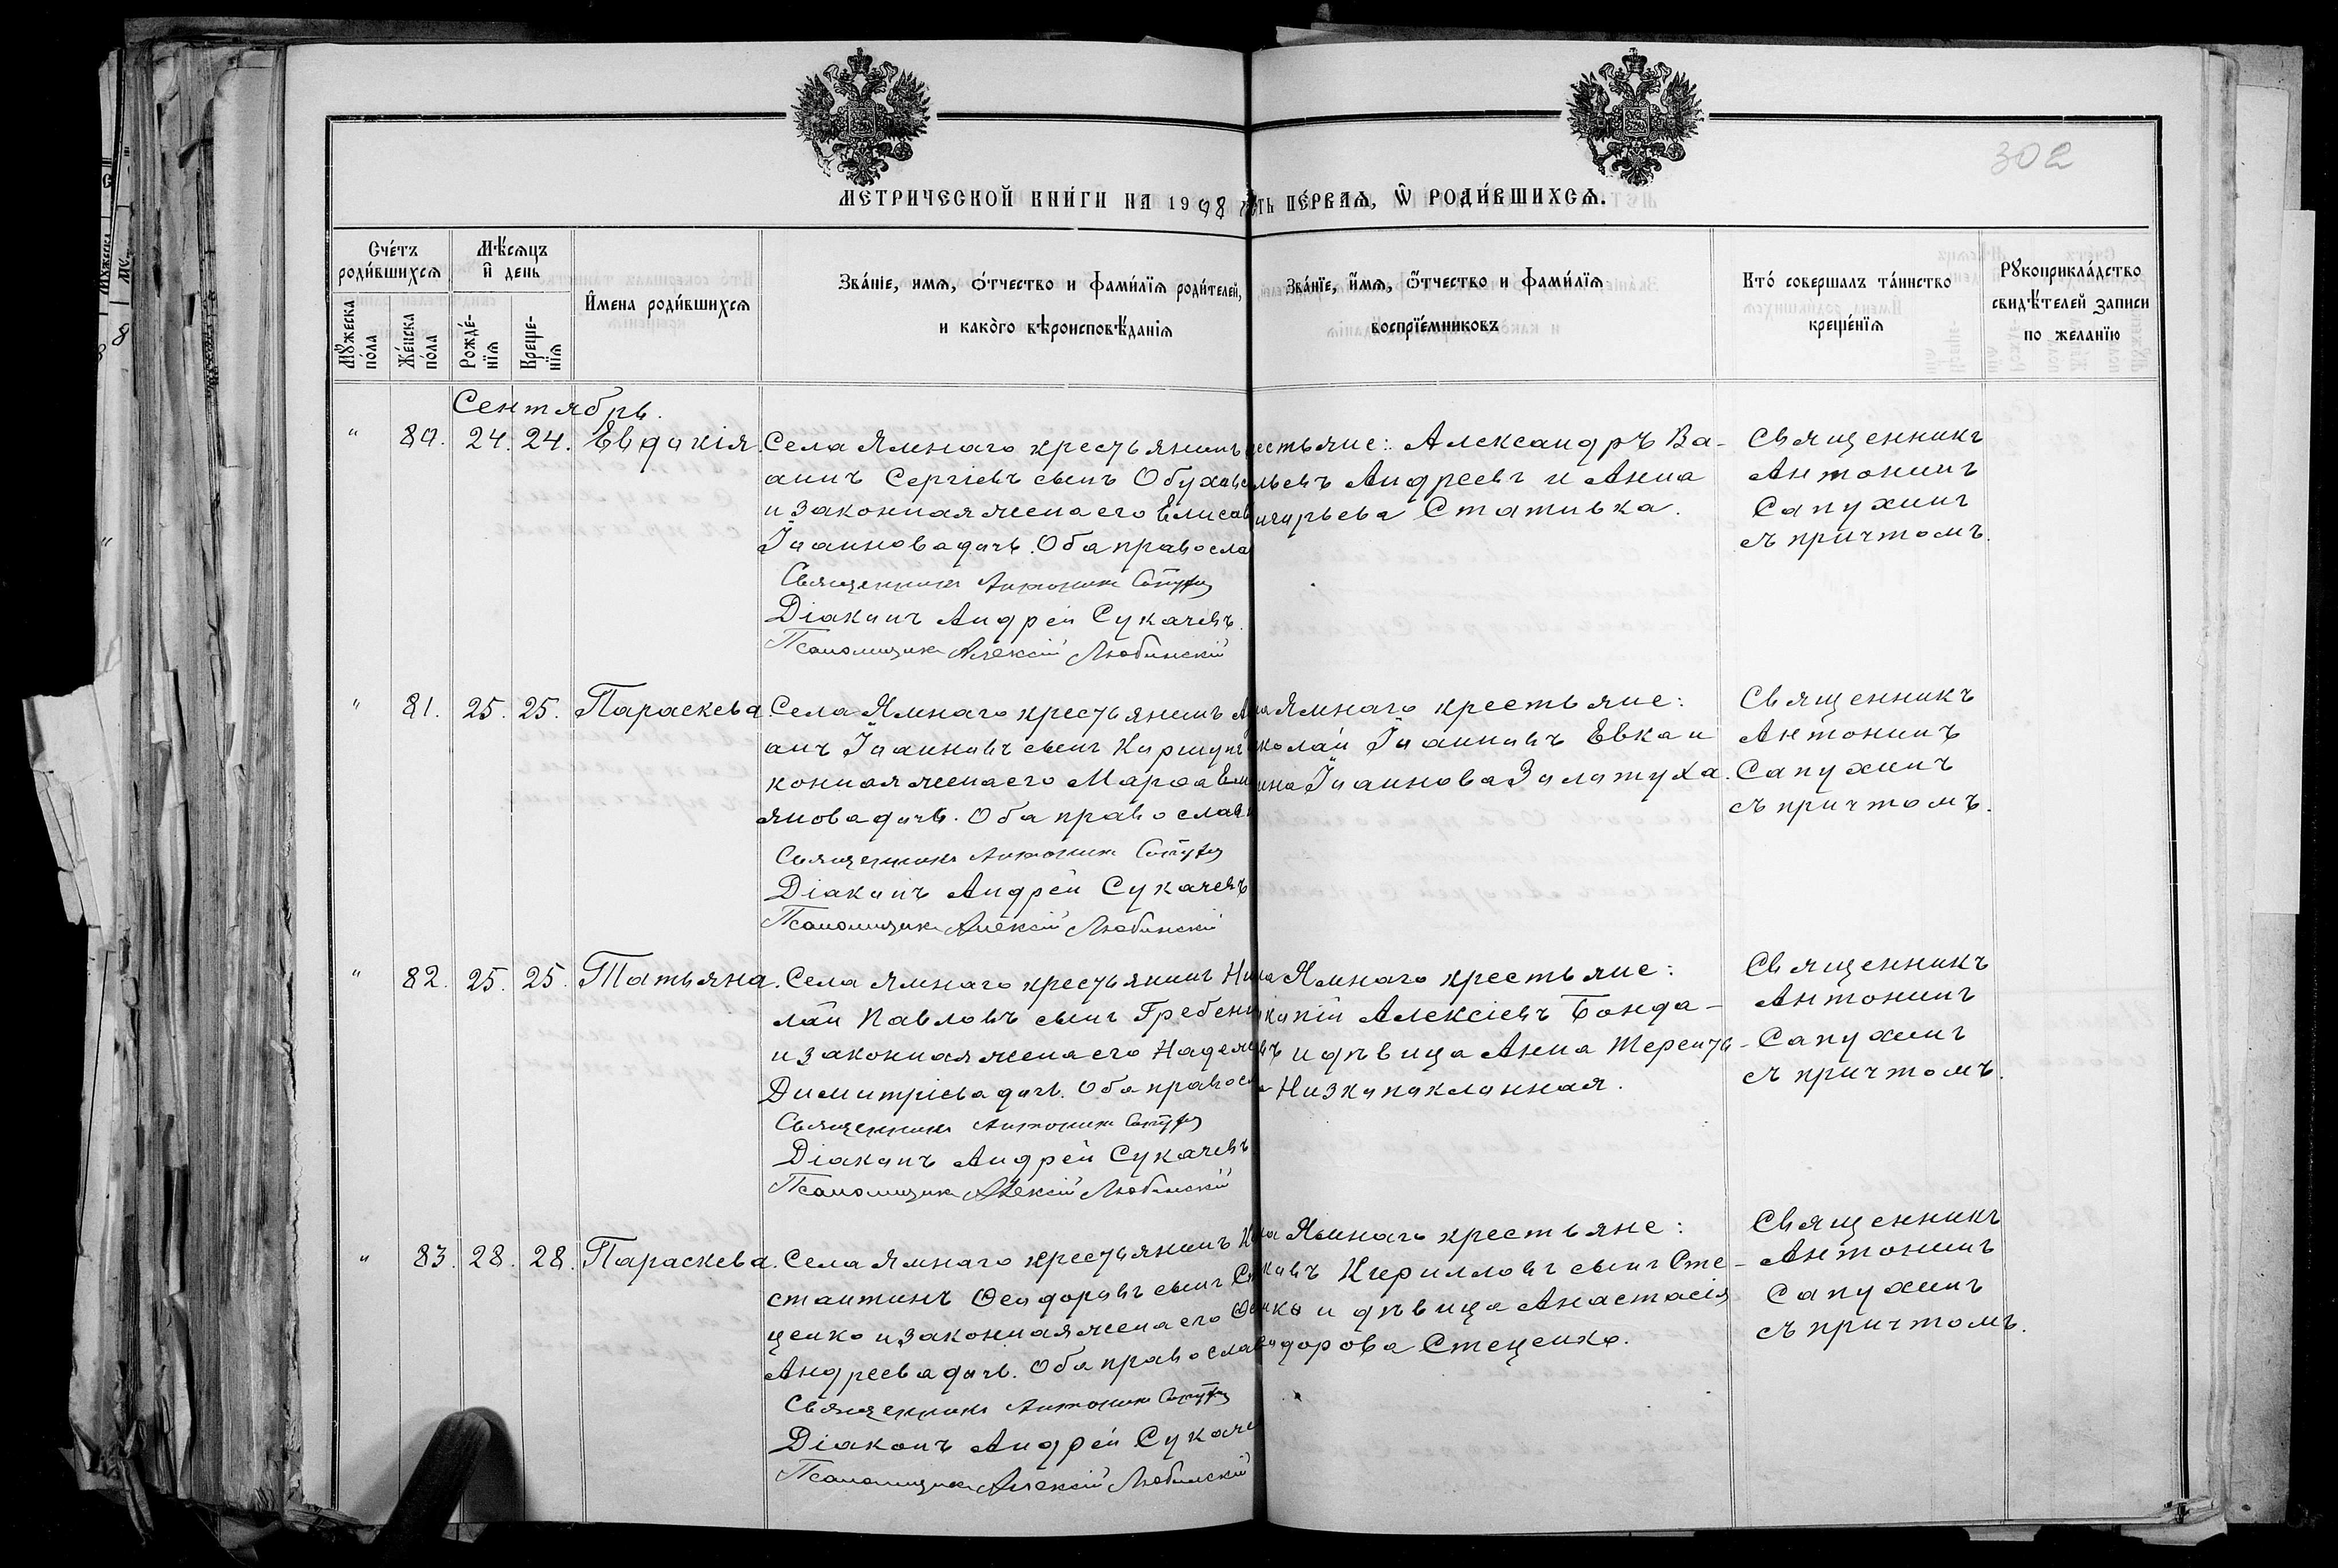 302
МЕТРИЧЕСКОЙ КНИГИ НА 1908 ПЕРВАЯ, Ѿ РОДИВШИХСЯ.
Счетъ родившихся
Мѣсяцъ и день
Мужеска пола
Женска пола
Рожденїя
Крещенїя
Имена родившихся
Званїе, имя, отчество и фамилїя родителей,
и какого вѣроисповѣданїя
Званїе, имя, ѿтчество и фамилїя
воспрїемниковъ
Кто совершалъ таинство
крещенїя
Рукоприкладство
свидѣтелей записи
по желанїю
Сентябрь.
" 80. 24. 24. Евдокія.
Села Ямнаго крестьянинъ
аннъ Сергіевъ сынъ Обухов
и законная жена его Елисав
Іоаннова дочь. Оба правосла
Священникъ Антонинъ
Діаконъ Андрей Сукачевъ.
Псаломщикъ Алексій Любинскій
естьяне: Александръ Ва-
льевъ Андреевъ и Анна
игорьева Стативка.
Священникъ
Антонинъ
Сапухинъ
съ причтомъ.
" 81. 25. 25. Параскева.
Села Ямнаго крестьянинъ
анъ Іоанновъ сынъ
конная жена его Марѳа Еме
янова дочь. Оба православн
Священникъ Антонинъ
Діаконъ Андрей Сукачевъ
Псаломщикъ Алексій Любинскій
Ямнаго крестьяне:
колай Іоанновъ Евка и
нна Іоаннова Золотуха.
Священникъ
Антонинъ
Сапухинъ
съ причтомъ.
" 82. 25. 25. Татьяна.
Села Ямнаго крестьянинъ Ник
лай Павловъ сынъ Гребенн
и законная жена его Надежд
Димитріева дочь. Оба правосл
Священникъ Антонинъ
Діаконъ Андрей Сукачевъ
Псаломщикъ Алексій Любинскій
Ямнаго крестьяне:
Алексіевъ Бонда-
и дѣвица Анна Терентье-
Низкопоклонная.
Священникъ
Антонинъ
Сапухинъ
съ причтомъ.
" 83. 28. 28. Параскева.
Села Ямнаго крестьянинъ Кон
стантинъ Ѳеодоровъ сынъ Сте
ценко и законная жена его
Андреева дочь. Оба православ
Священникъ Антонинъ
Діаконъ Андрей Сукаче
Псаломщикъ Алексій Любинскій
Ямнаго крестьяне:
Кирилловъ сынъ Сте-
ценко и дѣвица Анастасія
одорова Стеценко.
Священникъ
Антонинъ
Сапухинъ
съ причтомъ.